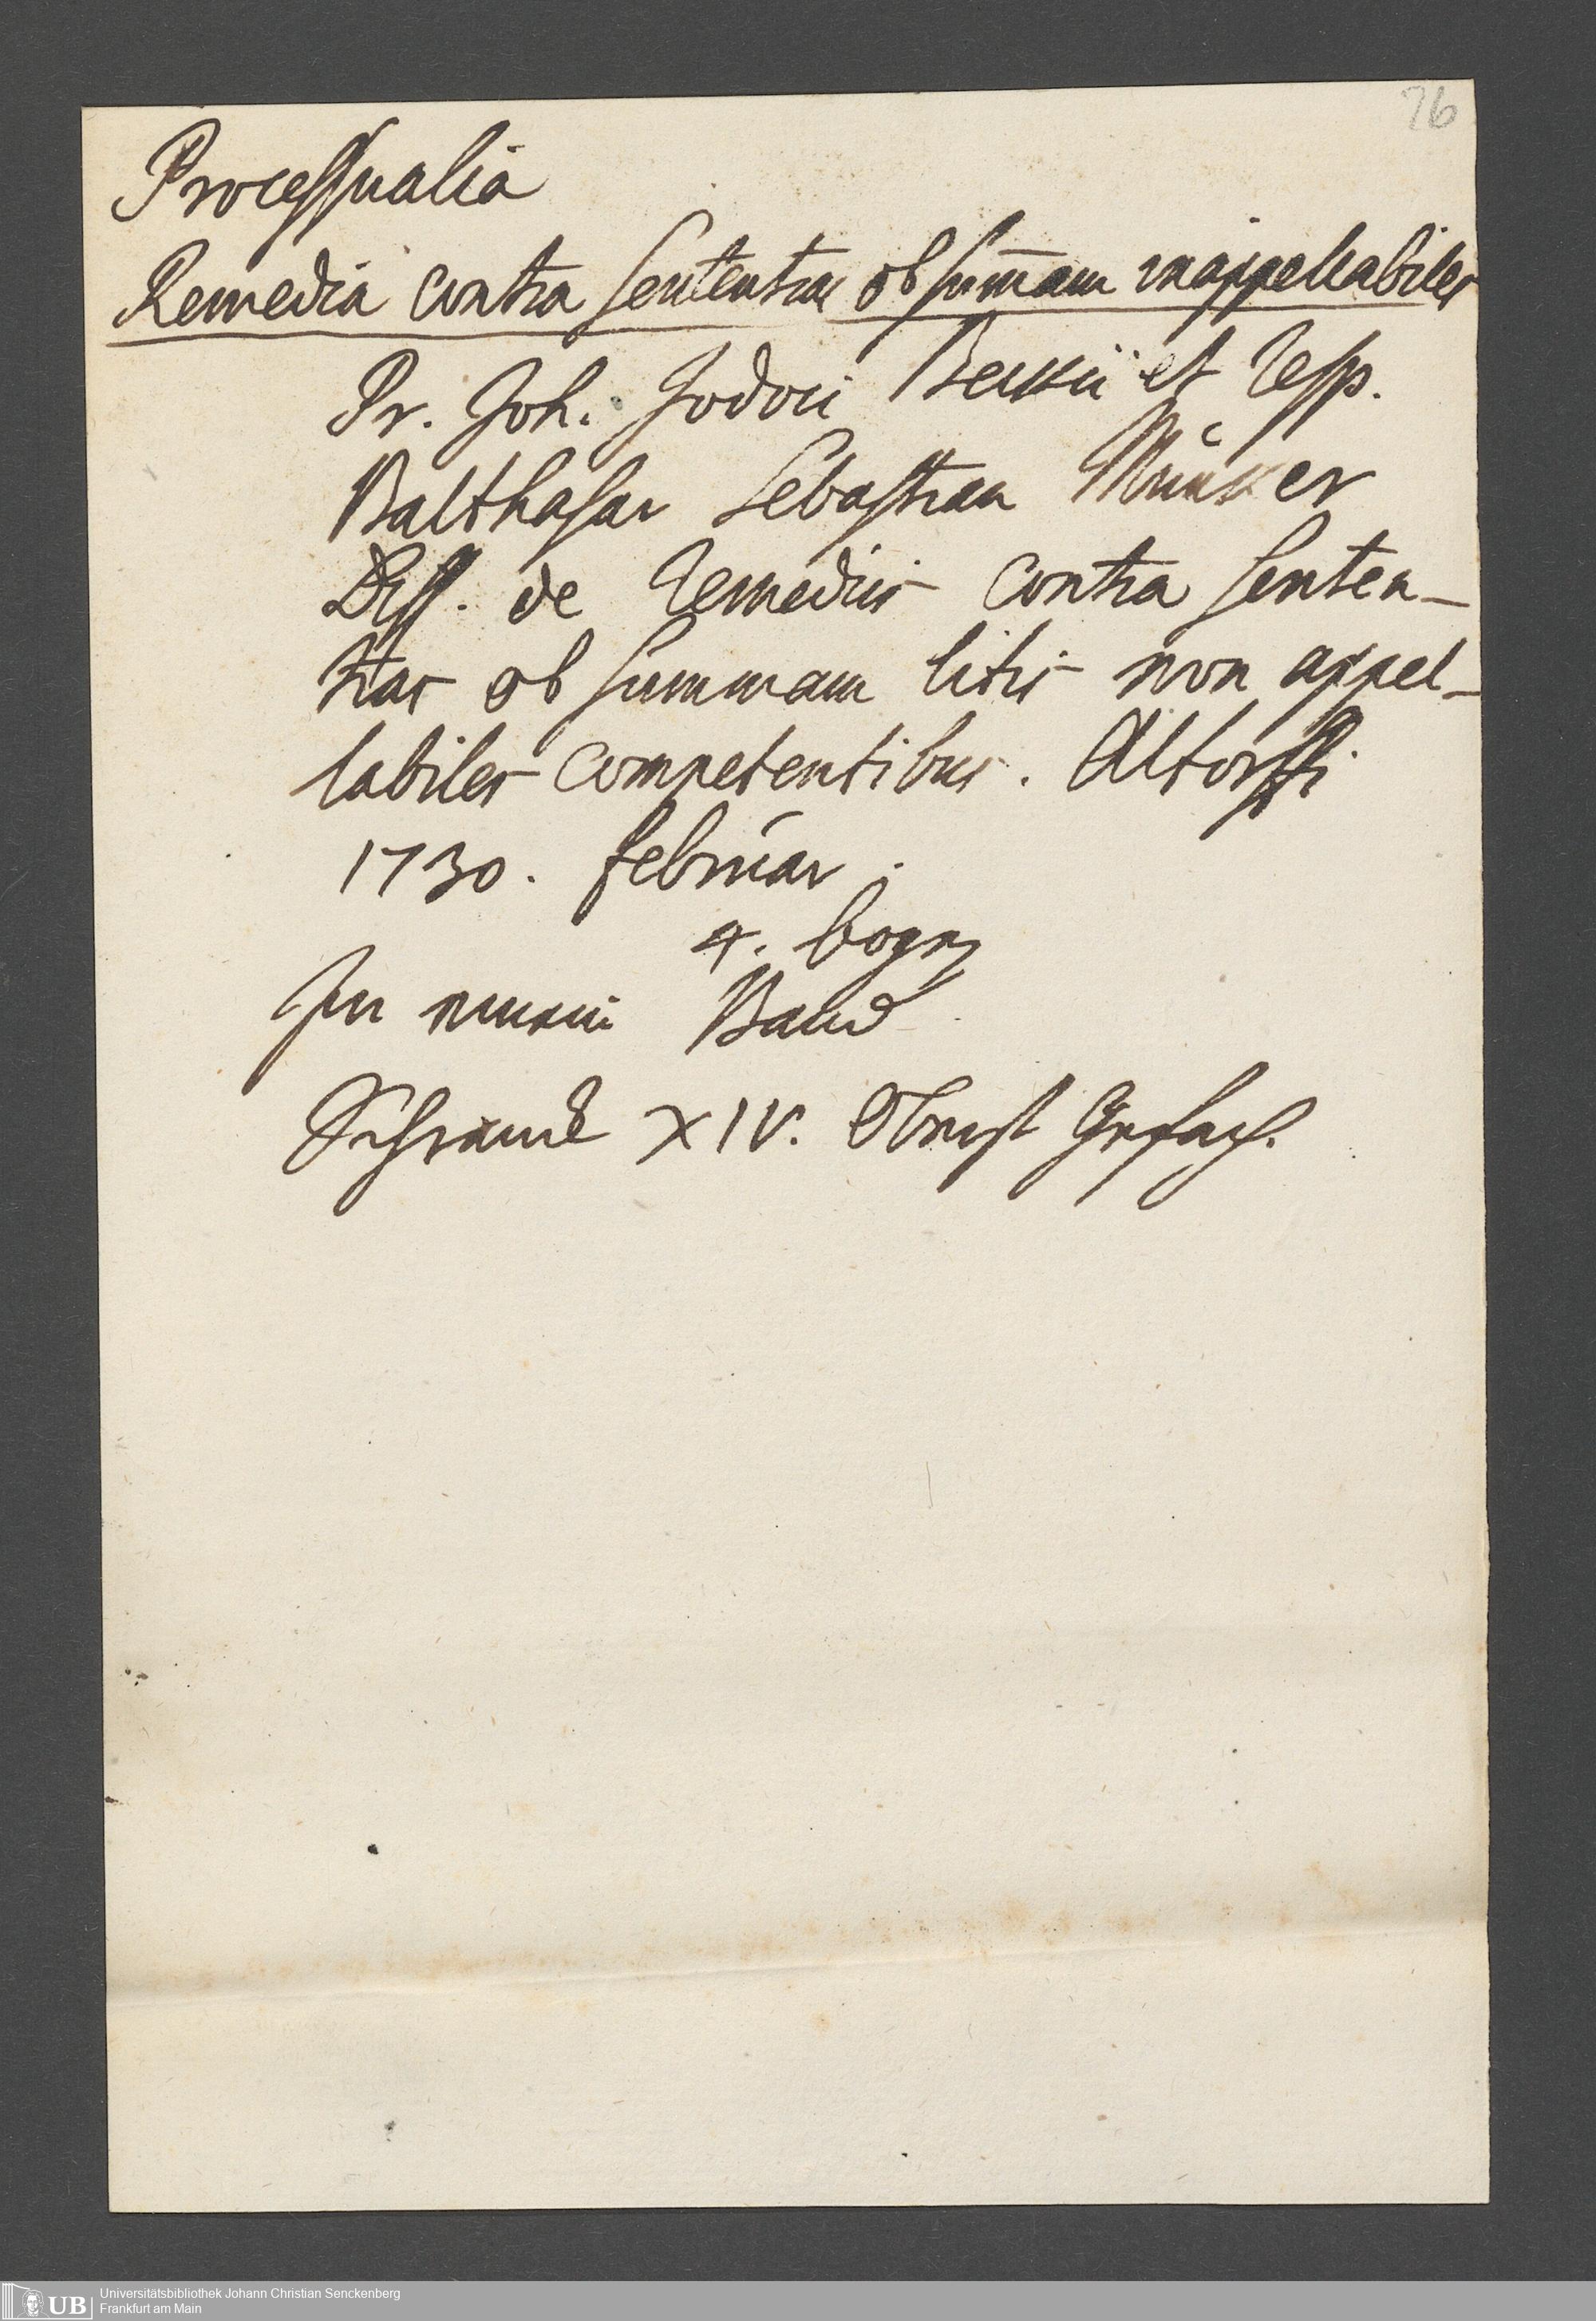 76
Processualia
Remedia contra sententias ob sum̄am inappellabiles
Pr. Joh. Jodoci Beckii et resp.
Balthasar Sebastian Münker
Diss. de remediis contra senten-
tias ob summam litis non appel-
labiles competentibus. Altorffi
1730. Februar.
4. bogen
In neuem Band
Schranck XIV. Oberst Gefach.
Universitätsbibliothek Johann Christian Senckenberg
Frankfurt am Main
UB